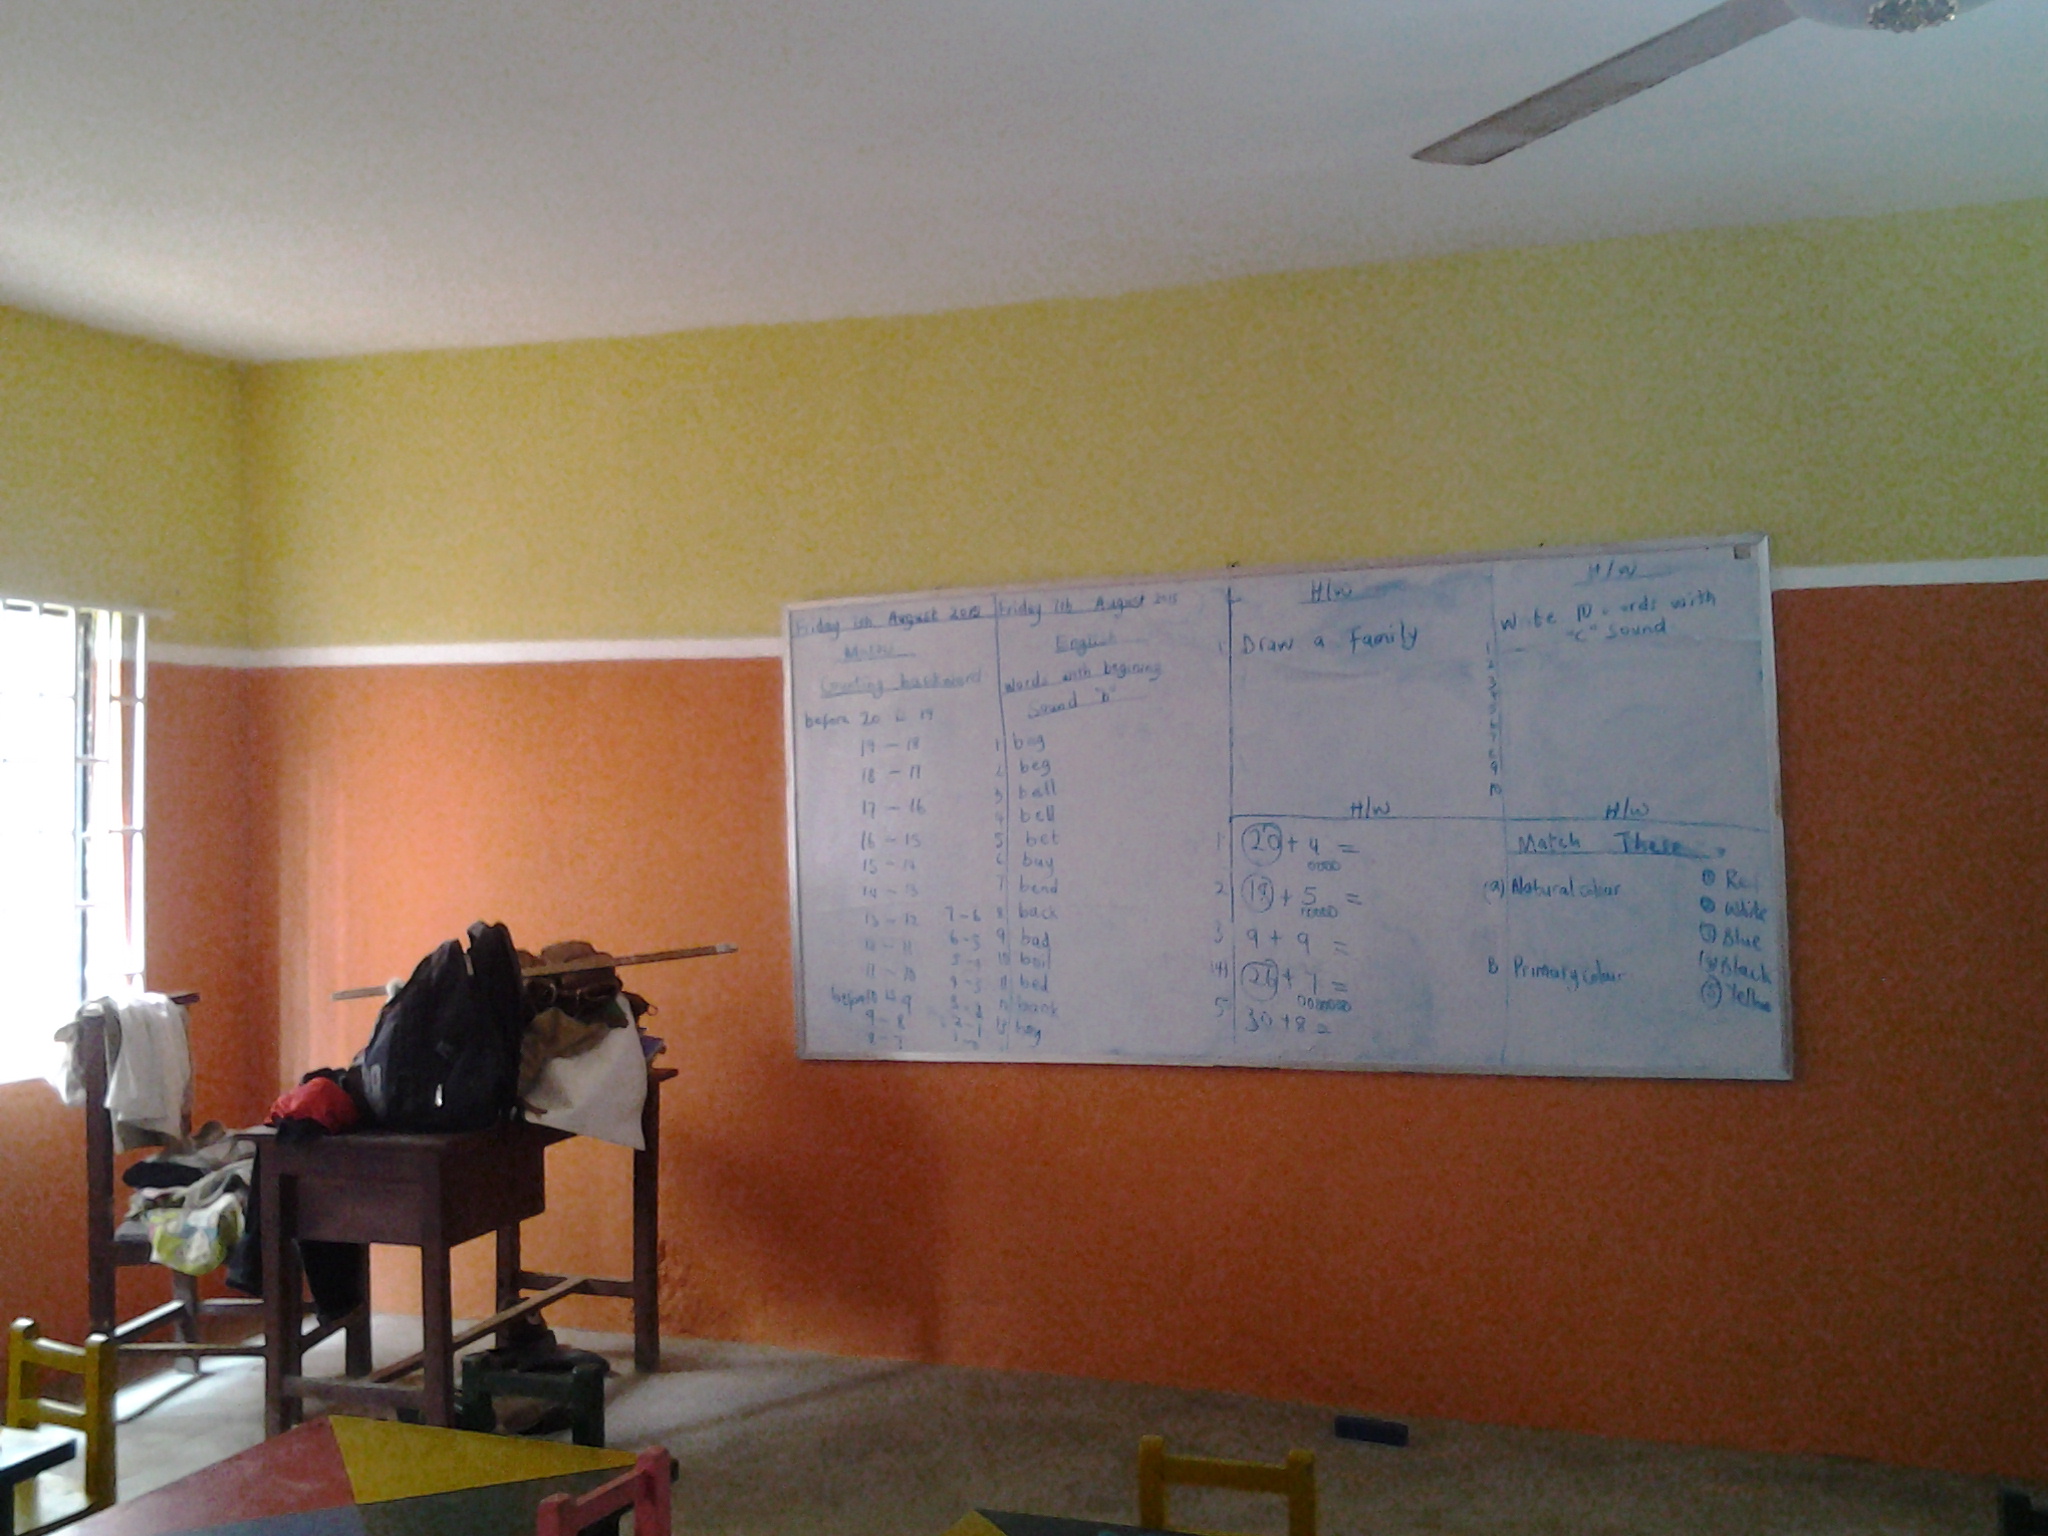 Friday 7th August 2015
Maths
Counting backward
before 20 is 19
19 - 18
18 - 17
17 - 16
16 - 15
15 - 14
14 - 13
13 - 12
12 - 11
11 - 10
before 10 is 9
9 - 8
8 - 7
7 - 6
6 - 5
5 - 4
4 - 3
3 - 2
2 - 1
Friday 7th August 2015
English
Words with begining
Sound "b"
1 bag
2 beg
3 ball
4 bell
5 bet
6 buy
7 bend
8 back
9 bad
10 boil
11 bed
12 bank
13
H/W
1 Draw a family
H/W
Write 10 words with
"c" sound
1
2
3
4
5
6
7
8
9
10
H/W
1 20 + 4 =
2 + 5 =
3 9 + 9 =
(4) + 7 =
5 30 + 8 =
H/W
Match These
(a) Natural colour
B Primary colour
① Red
② White
③ Blue
④ Black
⑤ Yellow